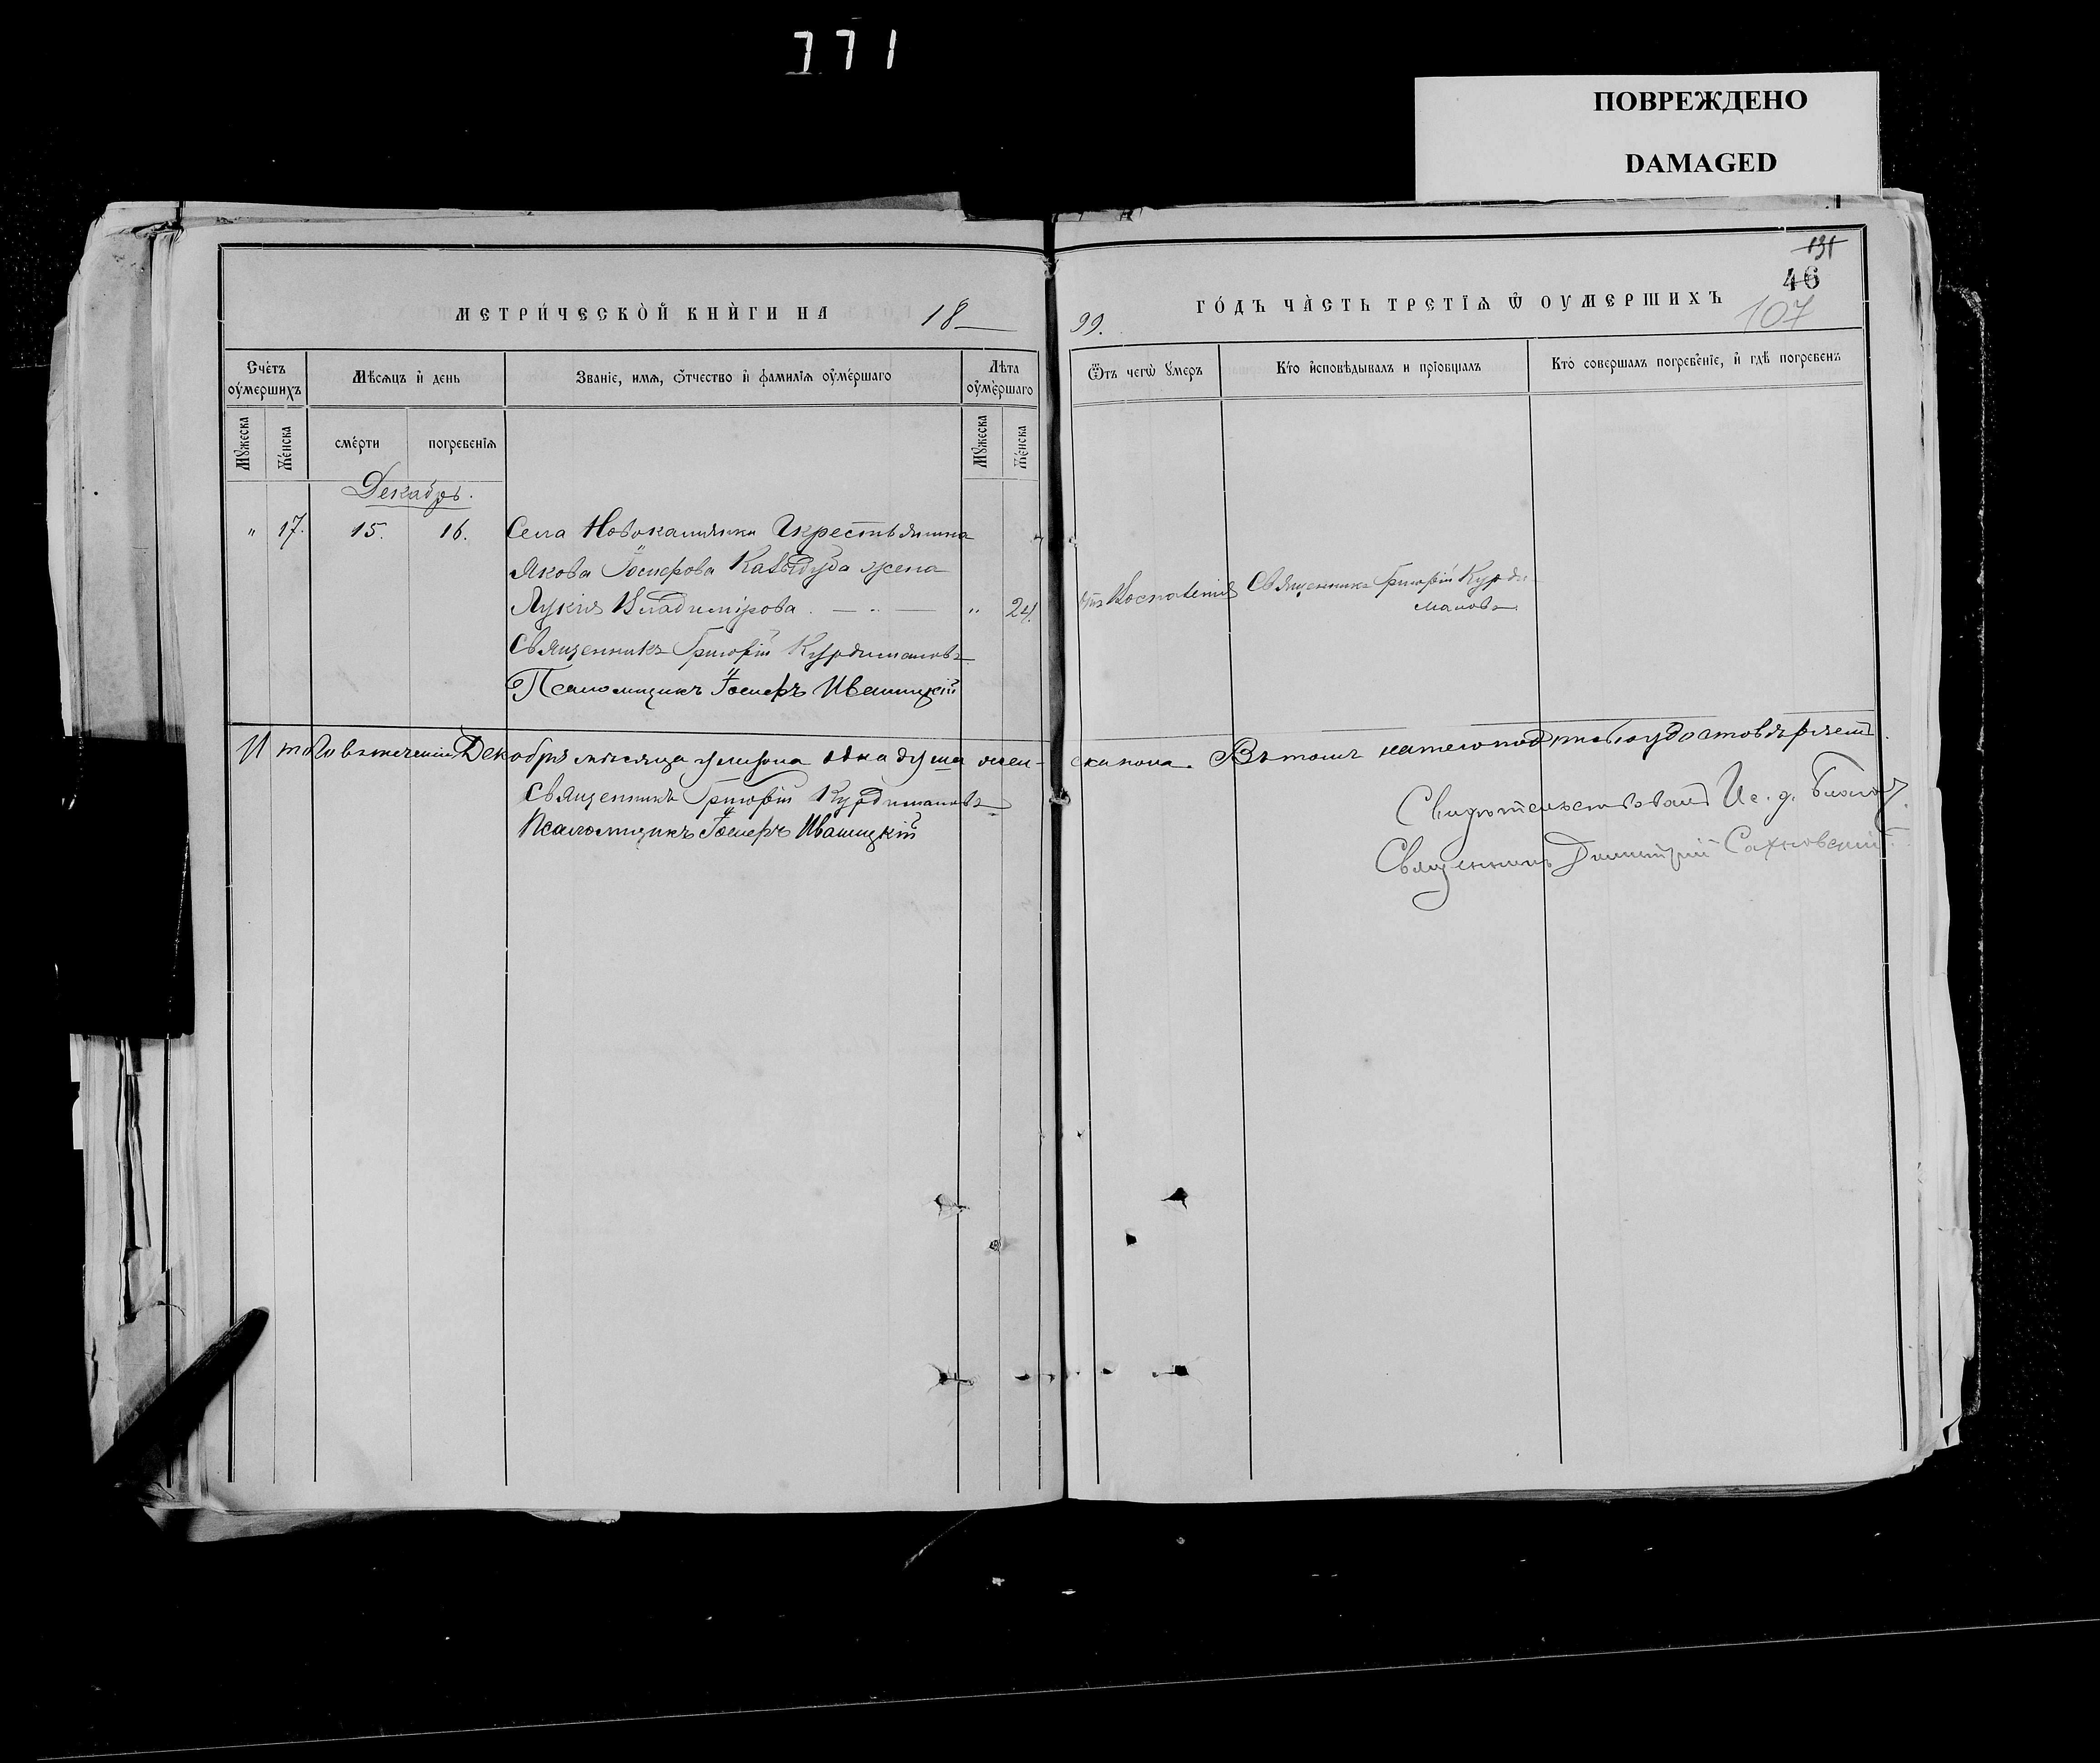 771
ПОВРЕЖДЕНО
DAMAGED
131
46
107
МЕТРИ́ЧЕСКО̀Й КНЍГИ НА 18 99. ГО́ДЪ ЧА̀СТЬ ТРЕТІѦ Ѿ ОУМЕРШИХЪ
Сче́тъ оу́мершихъ
Мѣсѧцъ и́ день
Званіе, имѧ, ѻ́тчество и́ фамилїѧ оу́ме́ршаго
Лѣта оу́ме́ршаго
Ѿтъ чегѡ̀ ѹ́меръ
Кто̀ и́сповѣдывалъ и прїобщалъ
Кто̀ совершалъ погребе́нїе, и́ гдѣ̀ погребенъ
Мꙋжеска
Же́нска
сме́рти
погребенїѧ
Мꙋжеска
Же́нска
Декабрь.
" 17. 15. 16. Села Новокаменки крестьянина
Якова Іосифова жена
Лукія Владимірова. " 24. отъ Воспаленія Священникъ Григорій Курди-
мановъ
Священникъ Григорій Курдимановъ
Псаломщикъ Іосифъ Ивашицкій
Итого въ теченіи Декабря мѣсяца умерла одна душа жен-
скаго пола. Въ томъ и удостовѣряемъ
Священникъ Григорій Курдимановъ
Псаломщикъ Іосифъ Ивашицкій
Свидѣтельствовалъ Ис. д. Благоч.
Священникъ Димитрій Сахновскій